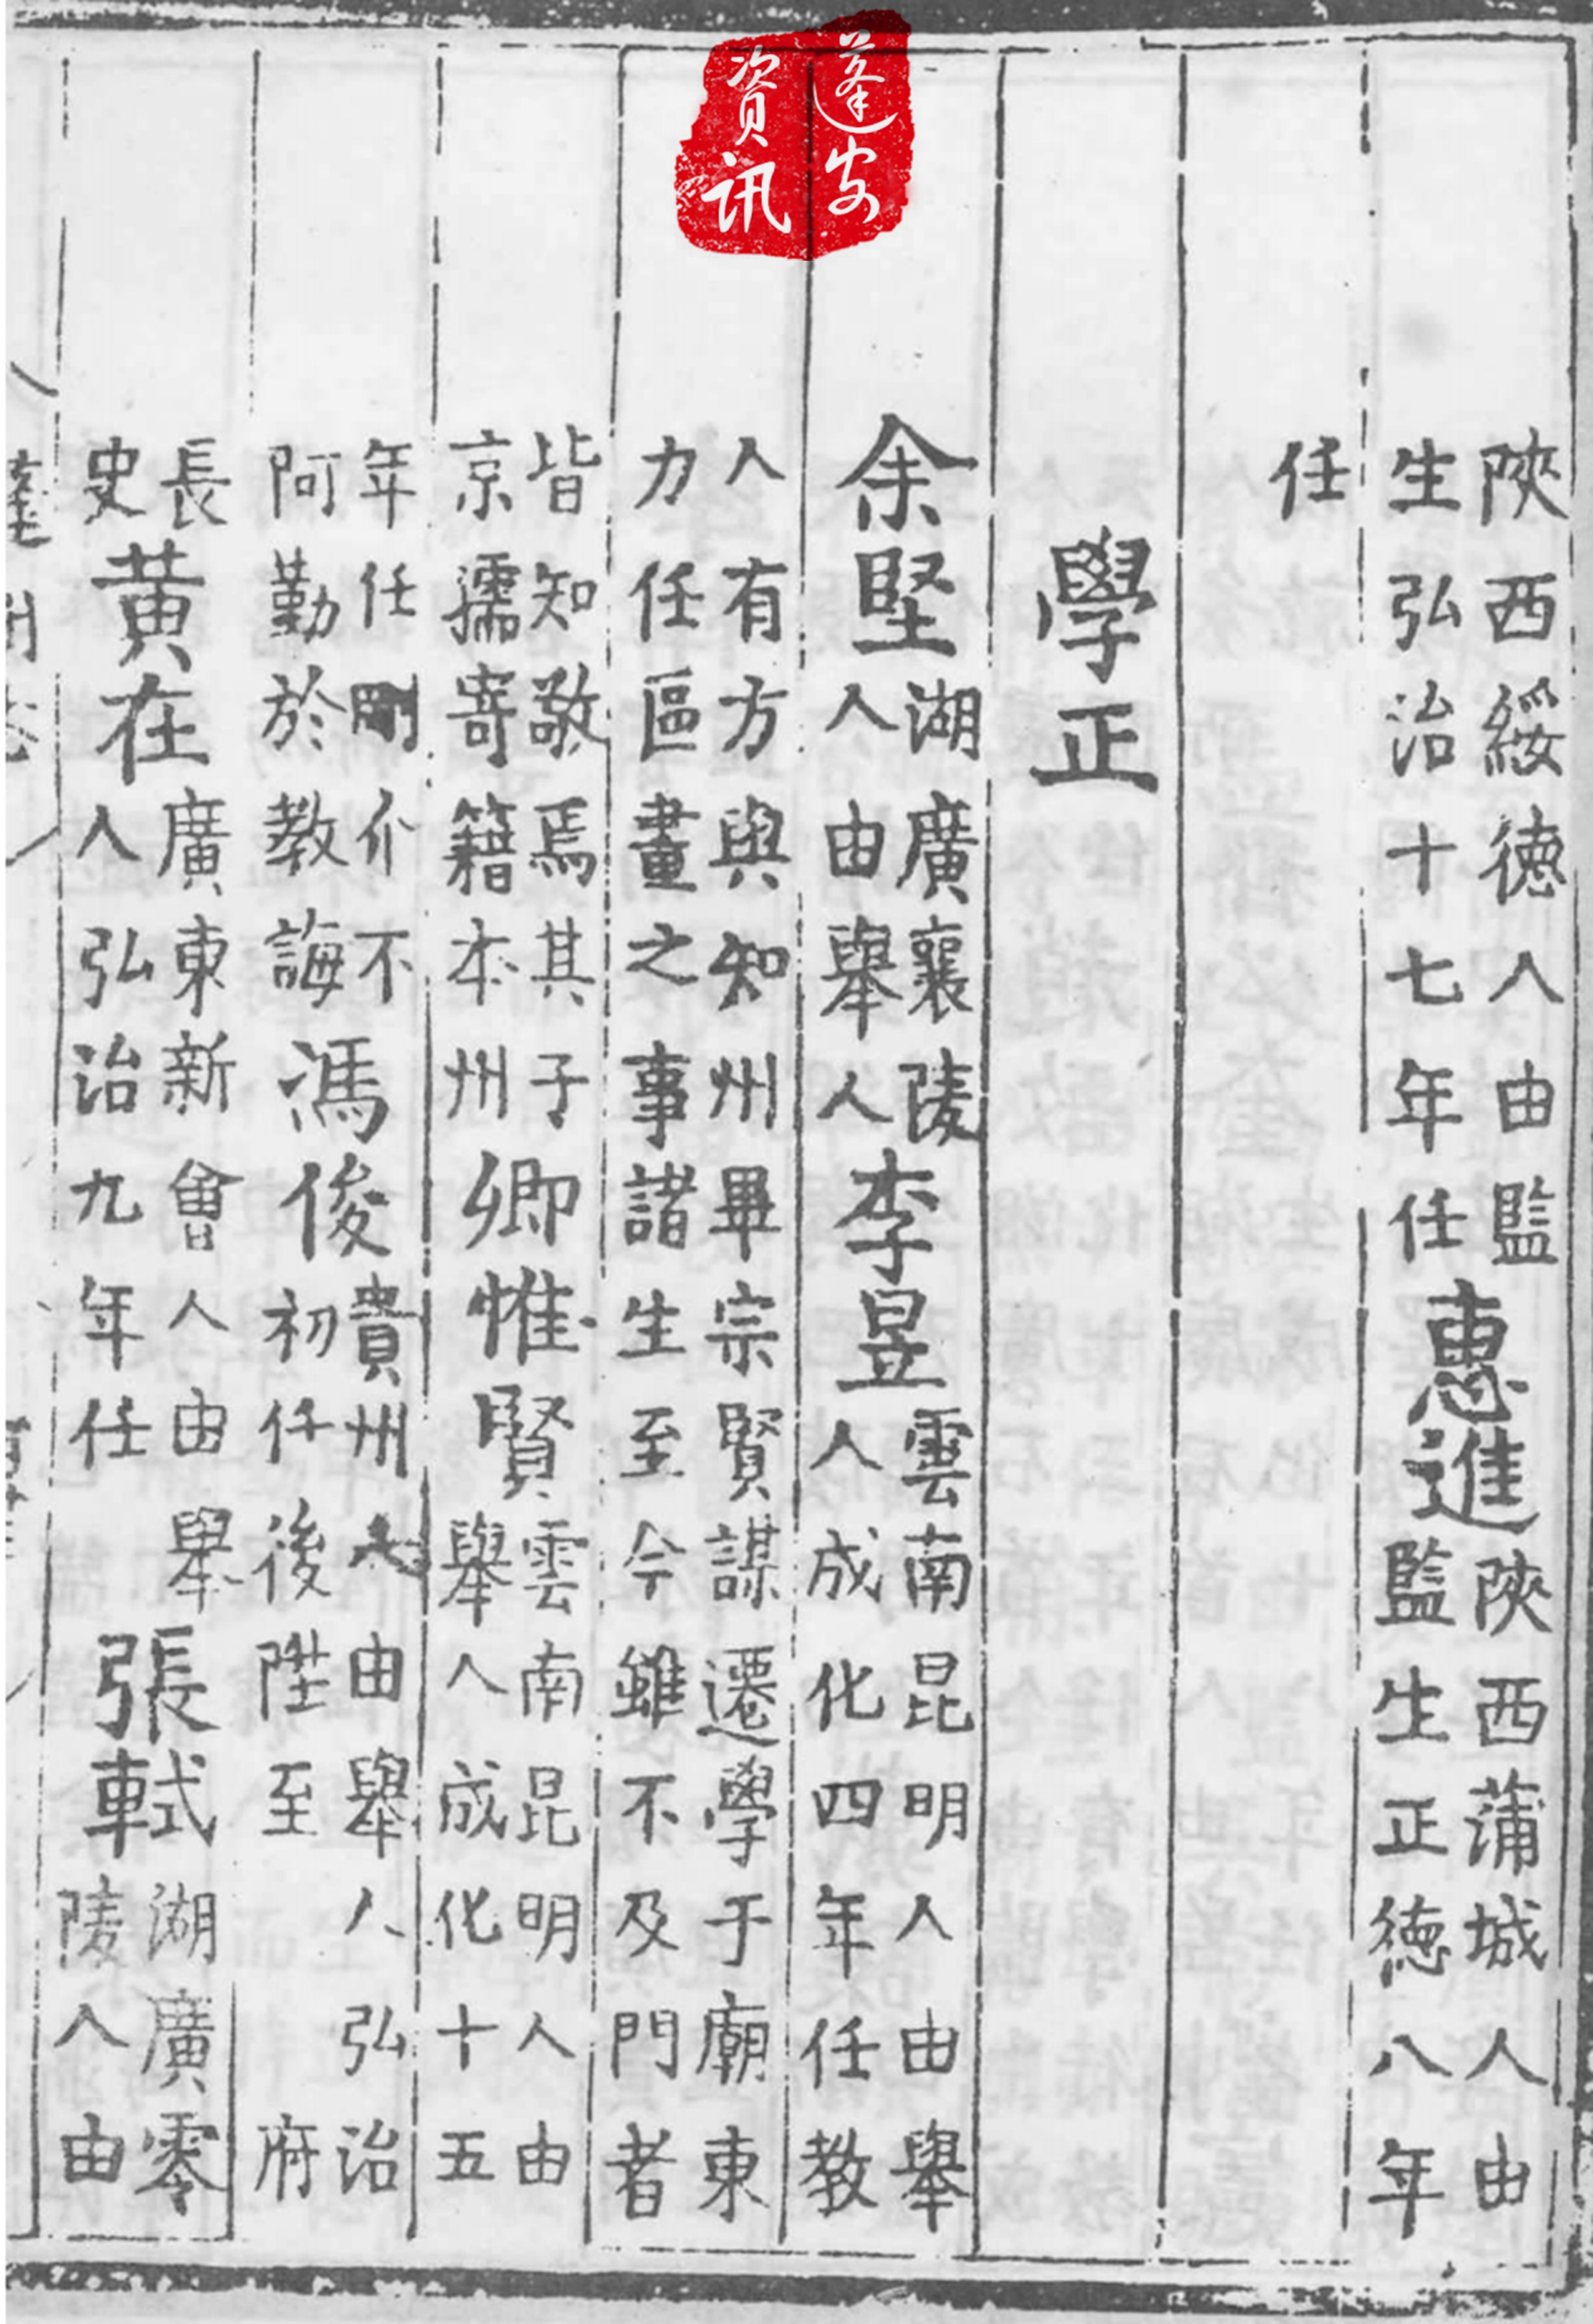 蓬安
資訊
陝西綏德人由監生弘治十七年任惠進陝西蒲城人由監生正德八年
任
學正
余堅湖廣襄陵人由舉人李昱雲南昆明人由舉人成化四年任教
人有方與知州畢宗賢謀遷學于廟東力任區畫之事諸生至今雖不及門者
皆知敬焉其子京孺寄籍本州卿惟賢雲南昆明人由舉人成化十五
年任剛介不阿勤於教誨馮俊貴州人由舉人弘治初任後陞至府
長史黃在廣東新會人由舉人弘治九年任張軾湖廣零陵人由